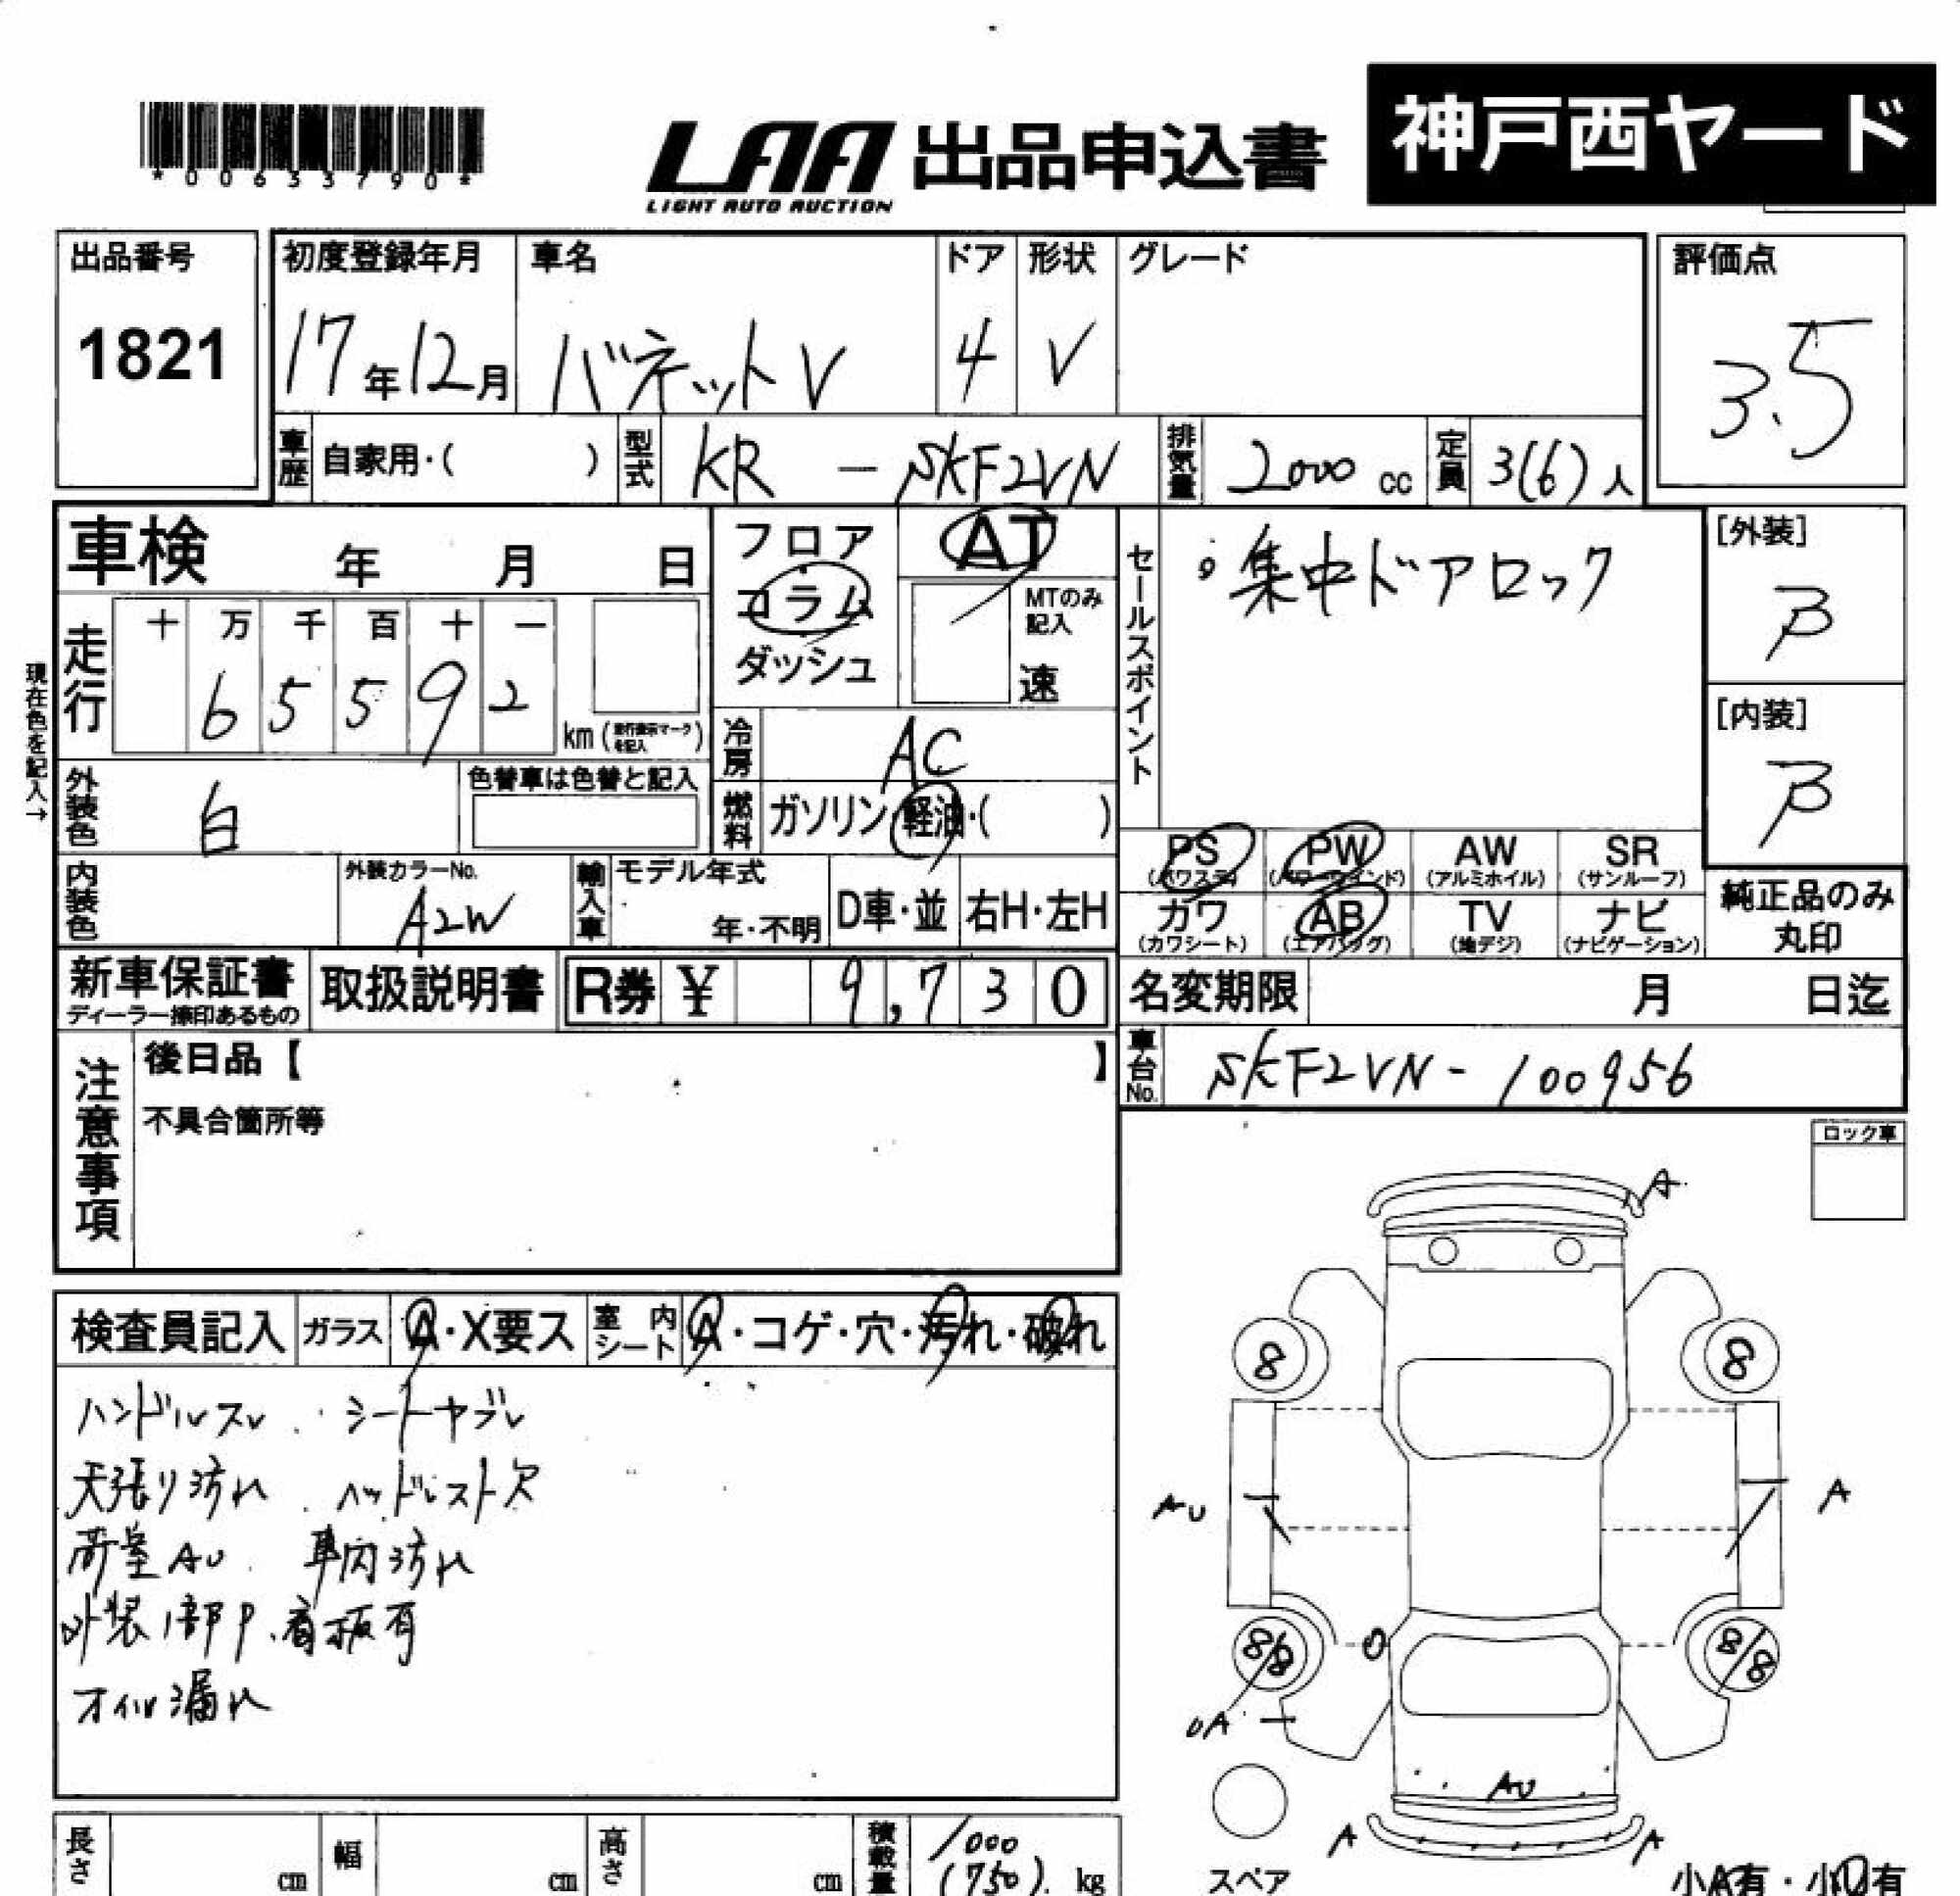 *00633790*
LAA 出品申込書
LIGHT AUTO AUCTION
神戸西ヤード
出品番号
1821
初度登録年月
17年12月
車名
バネットV
ドア
4
形状
V
グレード
評価点
3.5
車歴 自家用・( )
型式 KR - SKF2VN
排気量 2000 cc
定員 3(6)人
車検 年 月 日
フロア
コラム
ダッシュ
AT
MTのみ記入
速
走行
十 万 千 百 十 一
6 5 5 9 2
km
現在色を記入→
冷房 AC
燃料 ガソリン・軽油・( )
外装色 白
色替車は色替と記入
内装色
外装カラーNo.
A2W
輸入車
モデル年式
年・不明
D車・並
右H・左H
セールスポイント
・集中ドアロック
[外装]
B
[内装]
B
PS (パワステ)
PW (パワーウインド)
AW (アルミホイル)
SR (サンルーフ)
カワ (カワシート)
AB (エアバッグ)
TV (地デジ)
ナビ (ナビゲーション)
純正品のみ
丸印
新車保証書
ディーラー捺印あるもの
取扱説明書
R券 ¥ 9,730
名変期限 月 日迄
車台No. SKF2VN-100956
注意事項
後日品【 】
不具合箇所等
ロック車
検査員記入
ガラス A・X要ス
室内シート A・コゲ・穴・汚れ・破れ
ハンドルスレ . シートヤブレ
天張り汚れ . ヘッドレスト欠
荷室AU. 車内汚れ
外装1部P、看板有
オイル漏れ
A
8
8
AU
A
8/8
8/8
UA
AU
A
A
スペア
小A有・小U有
長さ cm
幅 cm
高さ cm
積載量 1000
(750). kg